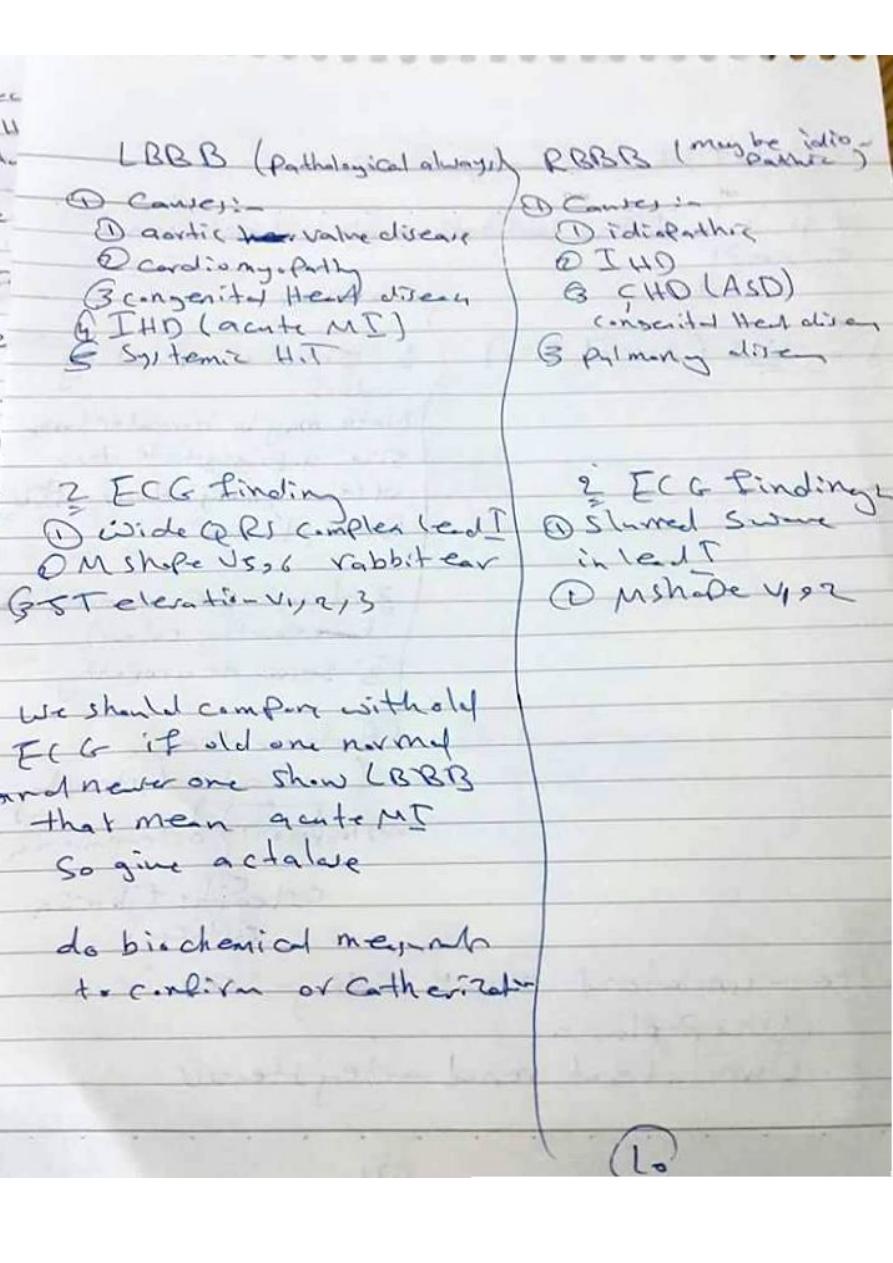 LBBB (pathological always)
① Causes:-
① aortic valve disease
② cardiomyopathy
③ congenital Heart diseas
④ IHD (acute MI)
5 Systemic H.T
2 ECG finding
① wide QRS complex lead I
② M shape V5,6 rabbit ear
③ ST elevation V1,2,3
We should compare with old
ECG if old one normal
and newer one show LBBB
that mean acute MI
So give actalase
do biochemical
to confirm or Catherization
RBBB (may be idio-
pathic)
① Causes:-
① idiopathic
② IHD
③ CHD (ASD)
congenital Heart diseas
③ pulmonary diseas
2 ECG finding
① slurred S wave
in lead I
① M shape V1,2
10